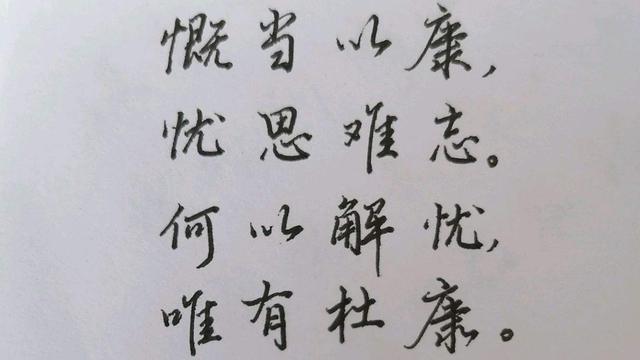 慨当以康,
忧思难忘。
何以解忧,
唯有杜康。